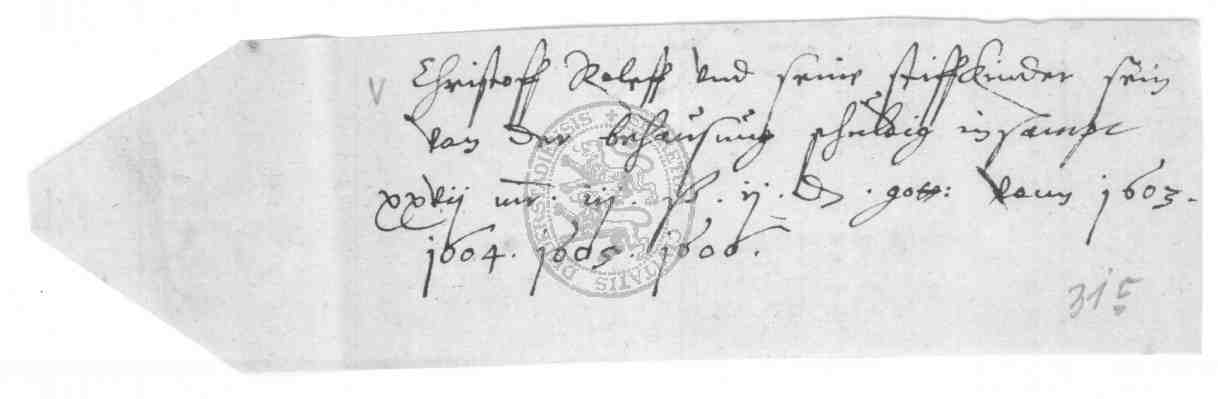 V Christoff Roleff und seine stiffkinder sein
von der behausung schuldig insampt
xxvij mr. iij. ß. ij. d. gott: vonn 1603.
1604. 1605. 1606.
315